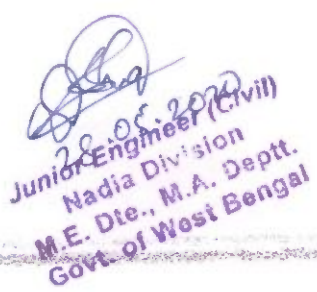 28.05.2020
Junior Engineer (Civil)
Nadia Division
M.E. Dte., M.A. Deptt.
Govt. of West Bengal